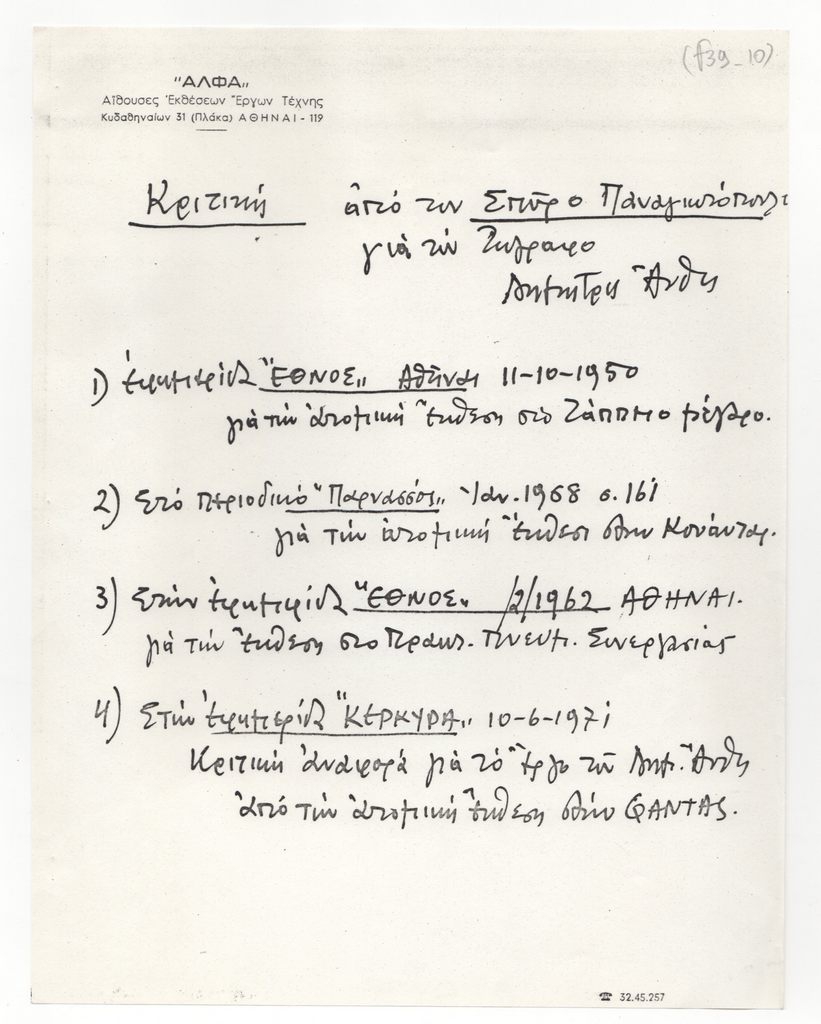 (f39-10)
"ΑΛΦΑ„
Αἴθουσες Ἐκθέσεων Ἔργων Τέχνης
Κυδαθηναίων 31 (Πλάκα) ΑΘΗΝΑΙ - 119
Κριτική ἀπό τον Σπύρο Παναγιωτόπουλο
γιὰ τὸν Ζωγραφο
Δημήτρη Ἄνθη
1) ἐφημερίδα "ΕΘΝΟΣ„ Ἀθῆναι 11-10-1950
γιὰ τὴν ἀτομικὴ ἔκθεση στὸ Ζάππειο μέγαρο.
2) Στό περιοδικό "Παρνασσός„ Ἰαν. 1968 σ. 161
γιὰ τὴν ἀτομικὴ ἔκθεση στὴν Κουάντας.
3) Στὴν ἐφημερίδα "ΕΘΝΟΣ„ /2/1962 ΑΘΗΝΑΙ.
γιὰ τὴν ἔκθεση στο Πρακτ. Πνευμ. Συνεργασίας
4) Στὴν ἐφημερίδα "ΚΕΡΚΥΡΑ„ 10-6-1971
Κριτικὴ ἀναφορά γιὰ τὸ ἔργο τοῦ Δημ. Ἄνθη
ἀπό τὴν ἀτομικὴ ἔκθεση στὴν QANTAS.
☎ 32.45.257